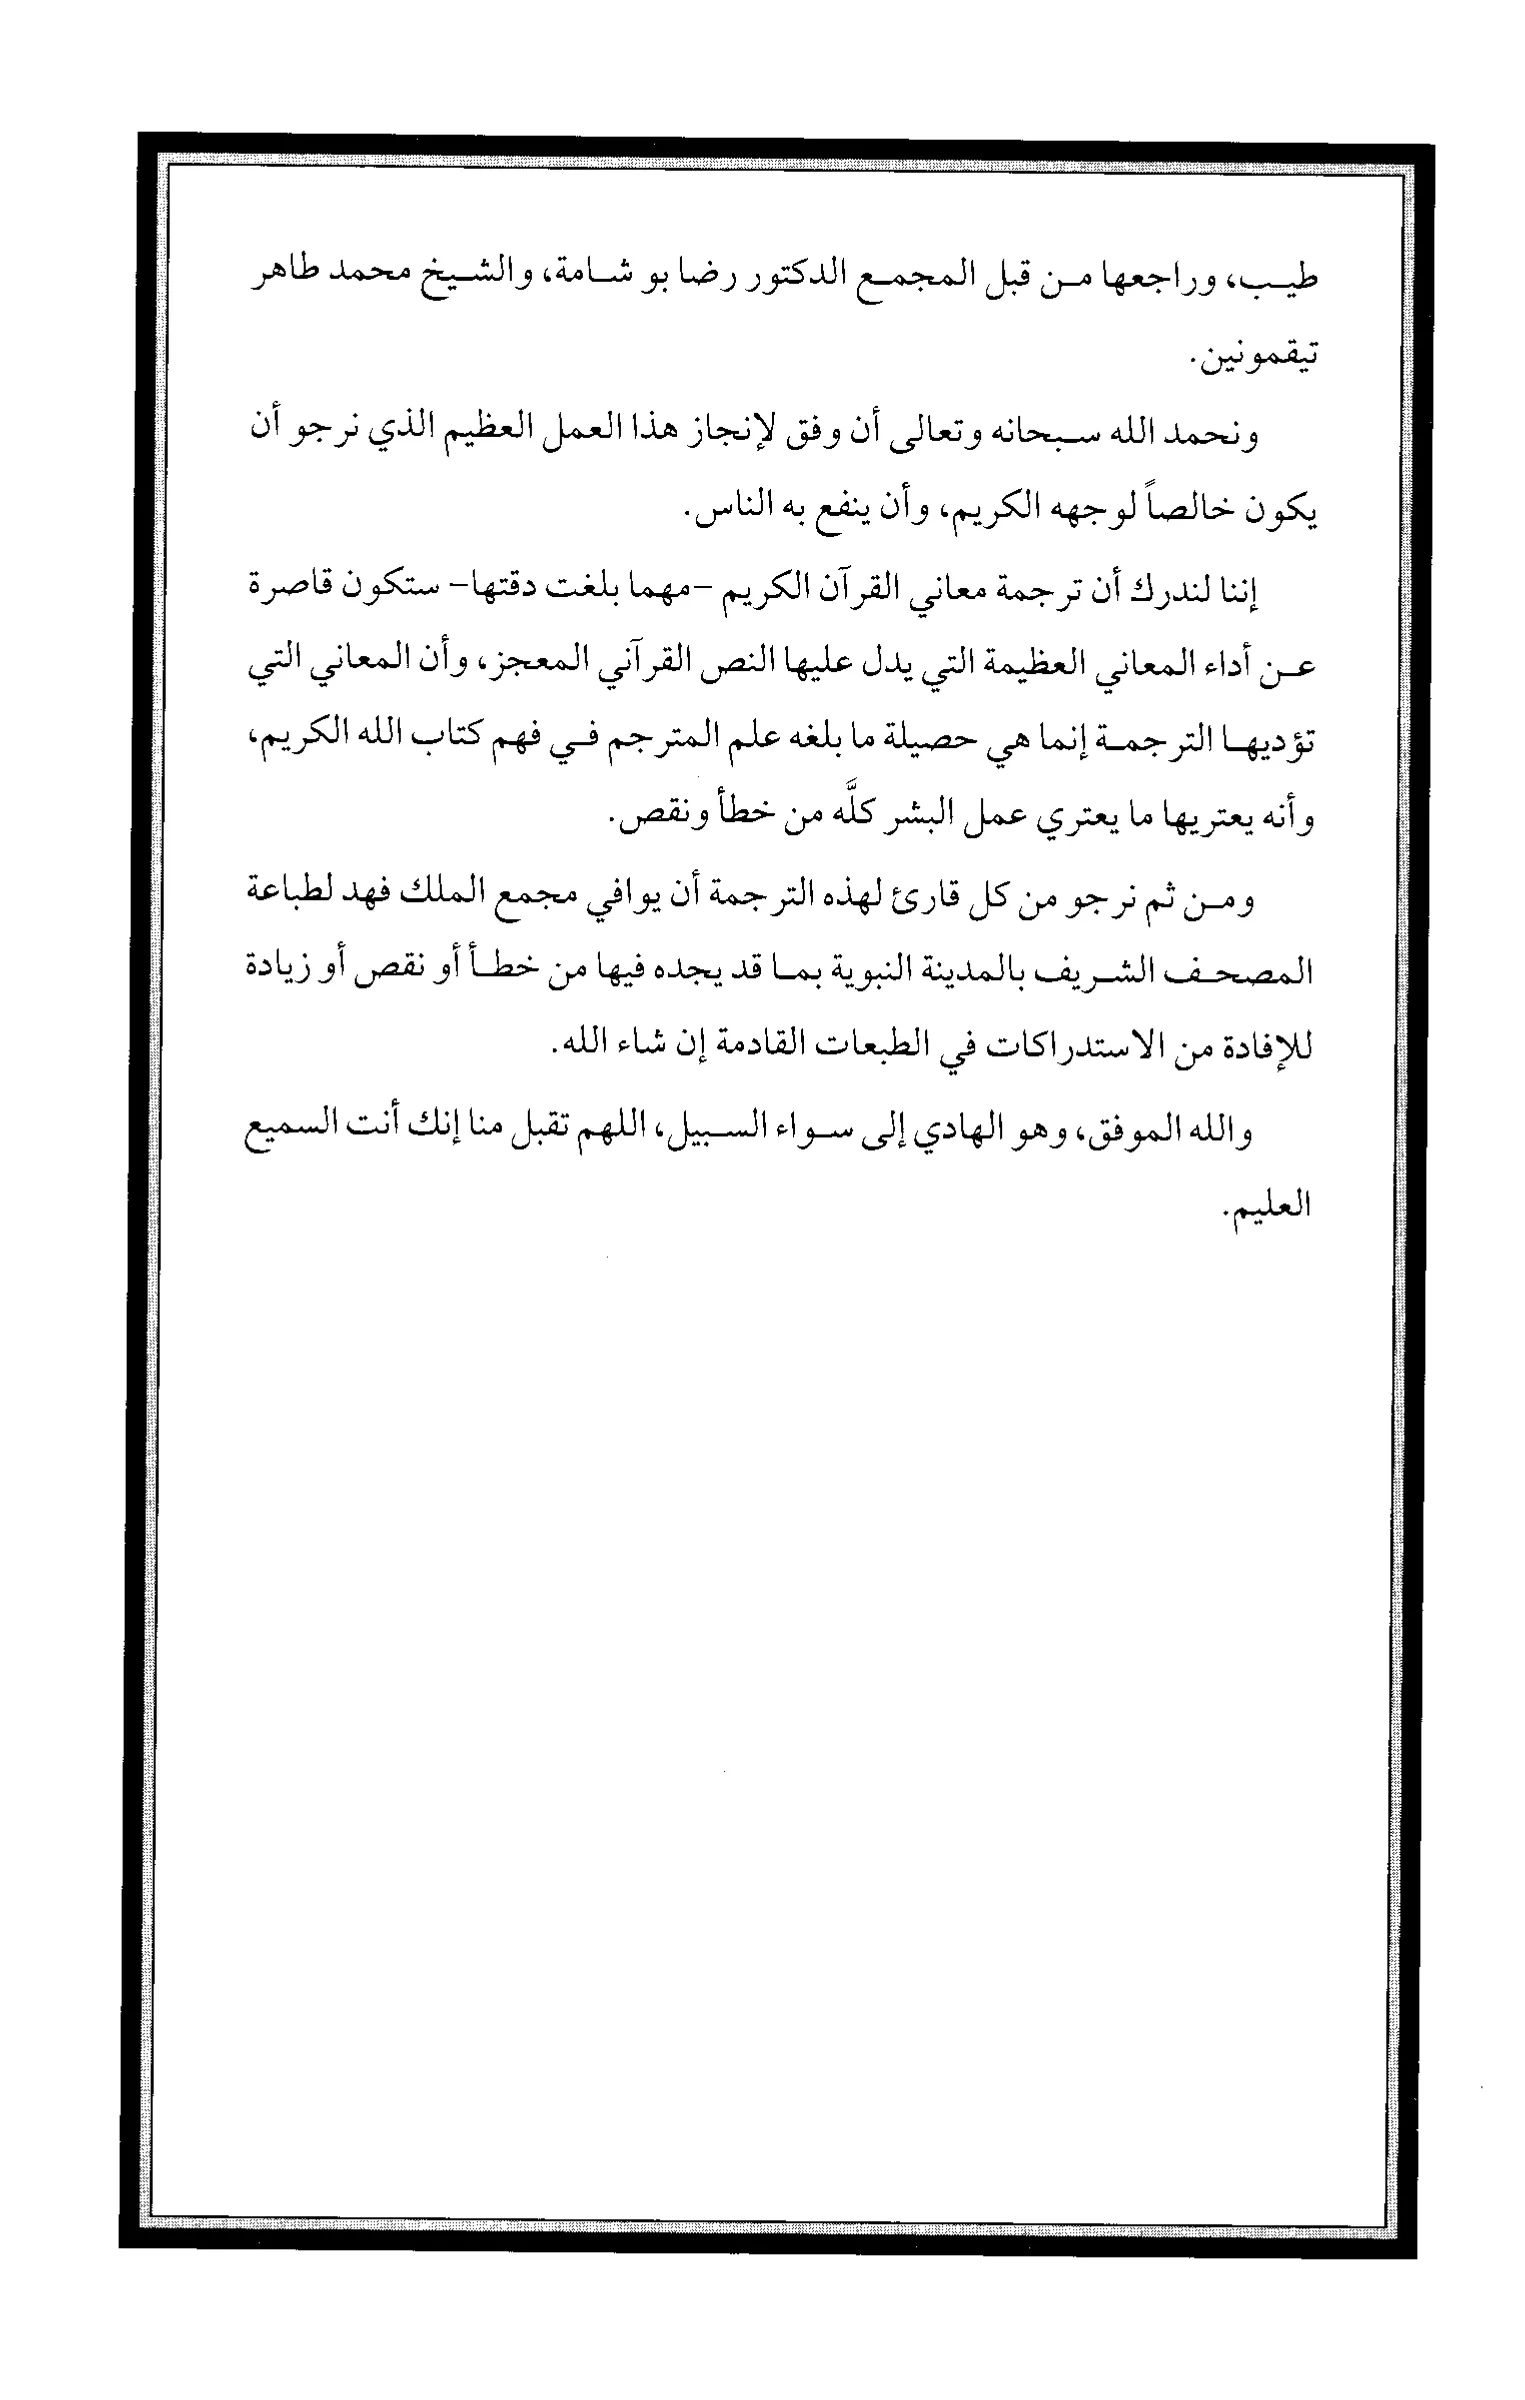 طيب، وراجعها من قبل المجمع الدكتور رضا بو شامة، والشيخ محمد طاهر
تيقمونين.
ونحمد الله سبحانه وتعالى أن وفق لإنجاز هذا العمل العظيم الذي نرجو أن
يكون خالصاً لوجهه الكريم، وأن ينفع به الناس.
إننا لندرك أن ترجمة معاني القرآن الكريم -مهما بلغت دقتها- ستكون قاصرة
عن أداء المعاني العظيمة التي يدل عليها النص القرآني المعجز، وأن المعاني التي
تؤديها الترجمة إنما هي حصيلة ما بلغه علم المترجم في فهم كتاب الله الكريم،
وأنه يعتريها ما يعتري عمل البشر كلَّه من خطأ ونقص.
ومن ثم نرجو من كل قارئ لهذه الترجمة أن يوافي مجمع الملك فهد لطباعة
المصحف الشريف بالمدينة النبوية بما قد يجده فيها من خطأ أو نقص أو زيادة
للإفادة من الاستدراكات في الطبعات القادمة إن شاء الله.
والله الموفق، وهو الهادي إلى سواء السبيل، اللهم تقبل منا إنك أنت السميع
العليم.